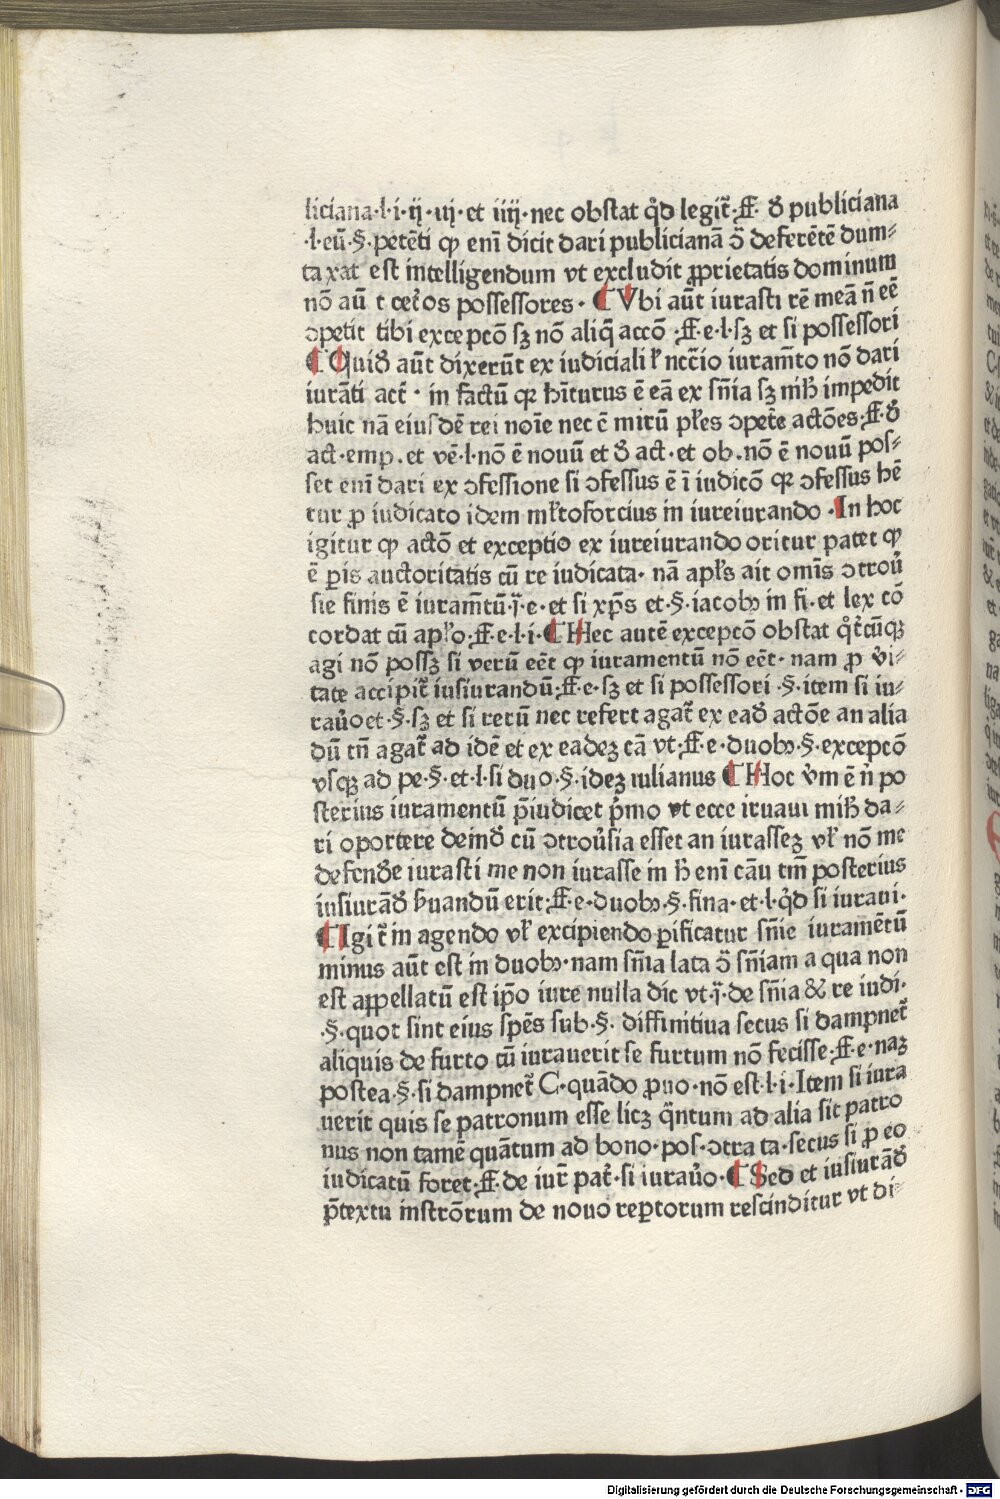 liciana·l·i·ij·iij·et iiij·nec obstat q̄d legit᷑·ff· ꝺ̄ publiciana
·l·eū·§·petēti ꝙ enī dicit dari publicianā ↄ̄ deferētē dum⸗
taxat est intelligendum vt excludit ꝓprietatis dominum
nō aū t cet̄os possessores· ¶ Vbi aūt iurasti rē meā n̄ eē
ↄpetit tibi excepcō sꝫ nō aliq̄ accō ·ff·e·l·sꝫ et si possessori
¶ Quiꝺ̄ aūt dixerūt ex iudiciali ł nccīo iuram̄to nō dari
iurāti act̄· in factū ꝙ hīturus ē eā ex sn̄ia sꝫ mihꝭ impedit
huic nā eiusdē rei noīe nec ē mirū płes ↄpet̄e actōes·ff·ꝺ̄
act·emp·et vē·l·nō ē nouū et ꝺ̄ act·et ob·nō ē nouū pos⸗
set enī dari ex ↄfessione si ↄfessus ē ī iudicō ꝙ ↄfessus hē
tur ꝓ iudicato idem młtoforcius in iureiurando ·In hoc
igitur ꝙ actō et exceptio ex iureiurando oritur patet ꝙ
ē ꝑis auctoritatis cū re iudicata· nā apłs ait omīs ↄtrou̓
sie finis ē iuram̄tū·j̄·e·et si xp̄s et·§·iacobꝰ in fi·et lex cō
cordat cū apło·ff·e·l·i·¶ Hec autē excepcō obstat q̄t᷑cūqꝫ
agi nō possꝫ si verū eēt ꝙ iuramentū nō eēt· nam ꝓ v̓i⸗
tate accipit᷑ iusiurandū·ff·e·sꝫ et si possessori ·§·item si iu⸗
rau̓oet·§·sꝫ et si rerū nec refert agat᷑ ex eaꝺ̄ actōe an alia
dū tn̄ agat᷑ ad idē et ex eadeꝫ cā vt·ff·e·duobꝰ·§·excepcō
vsqꝫ ad pe·§·et·l·si duo·§·ideꝫ iulianus ¶ Hoc v̓m ē n̓ po
sterius iuramentū p̄iudicet p̓mo vt ecce iruaui mihꝭ da⸗
ri oportere deinꝺ̄ cū ↄtrou̓sia esset an iurasseꝫ vł nō me
defenꝺ̄e iurasti me non iurasse in hꝭ enī cāu tm̄ posterius
iusiurāꝺ̄ ẜuandū erit·ff·e·duobꝰ·§·fina·et·l·q̄d si iuraui·
¶ Igit᷑ in agendo vł excipiendo ꝑificatur sn̄ie iuramētū
minus aūt est in duobꝰ·nam sn̄ia lata ↄ̄ sn̄iam a qua non
est aꝓpellatū est ip̄o iure nulla dic vt·j̄·de sn̄ia & re iudi·
·§·quot sint eius spēs sub·§· diffinitiua secus si dampnet᷑
aliquis de furto cū iurauerit se furtum nō fecisse·ff·e·naꝫ
postea·§·si dampnet᷑ C·quādo ꝓuo·nō est·l·i·Item si iura
uerit quis se patronum esse licꝫ q̄ntum ad alia sit patro
nus non tamē quātum ad bono·pos·ↄtra ta·secus si ꝓ eo
iudicatū foret·ff·de iur᷑ pat᷑·si iurau̓o·¶ Sed et iusiurāꝺ̄
p̄textu instrōrum de nouo reꝑtorum rescinditur vt di⸗
Digitalisierung gefördert durch die Deutsche Forschungsgemeinschaft · DFG